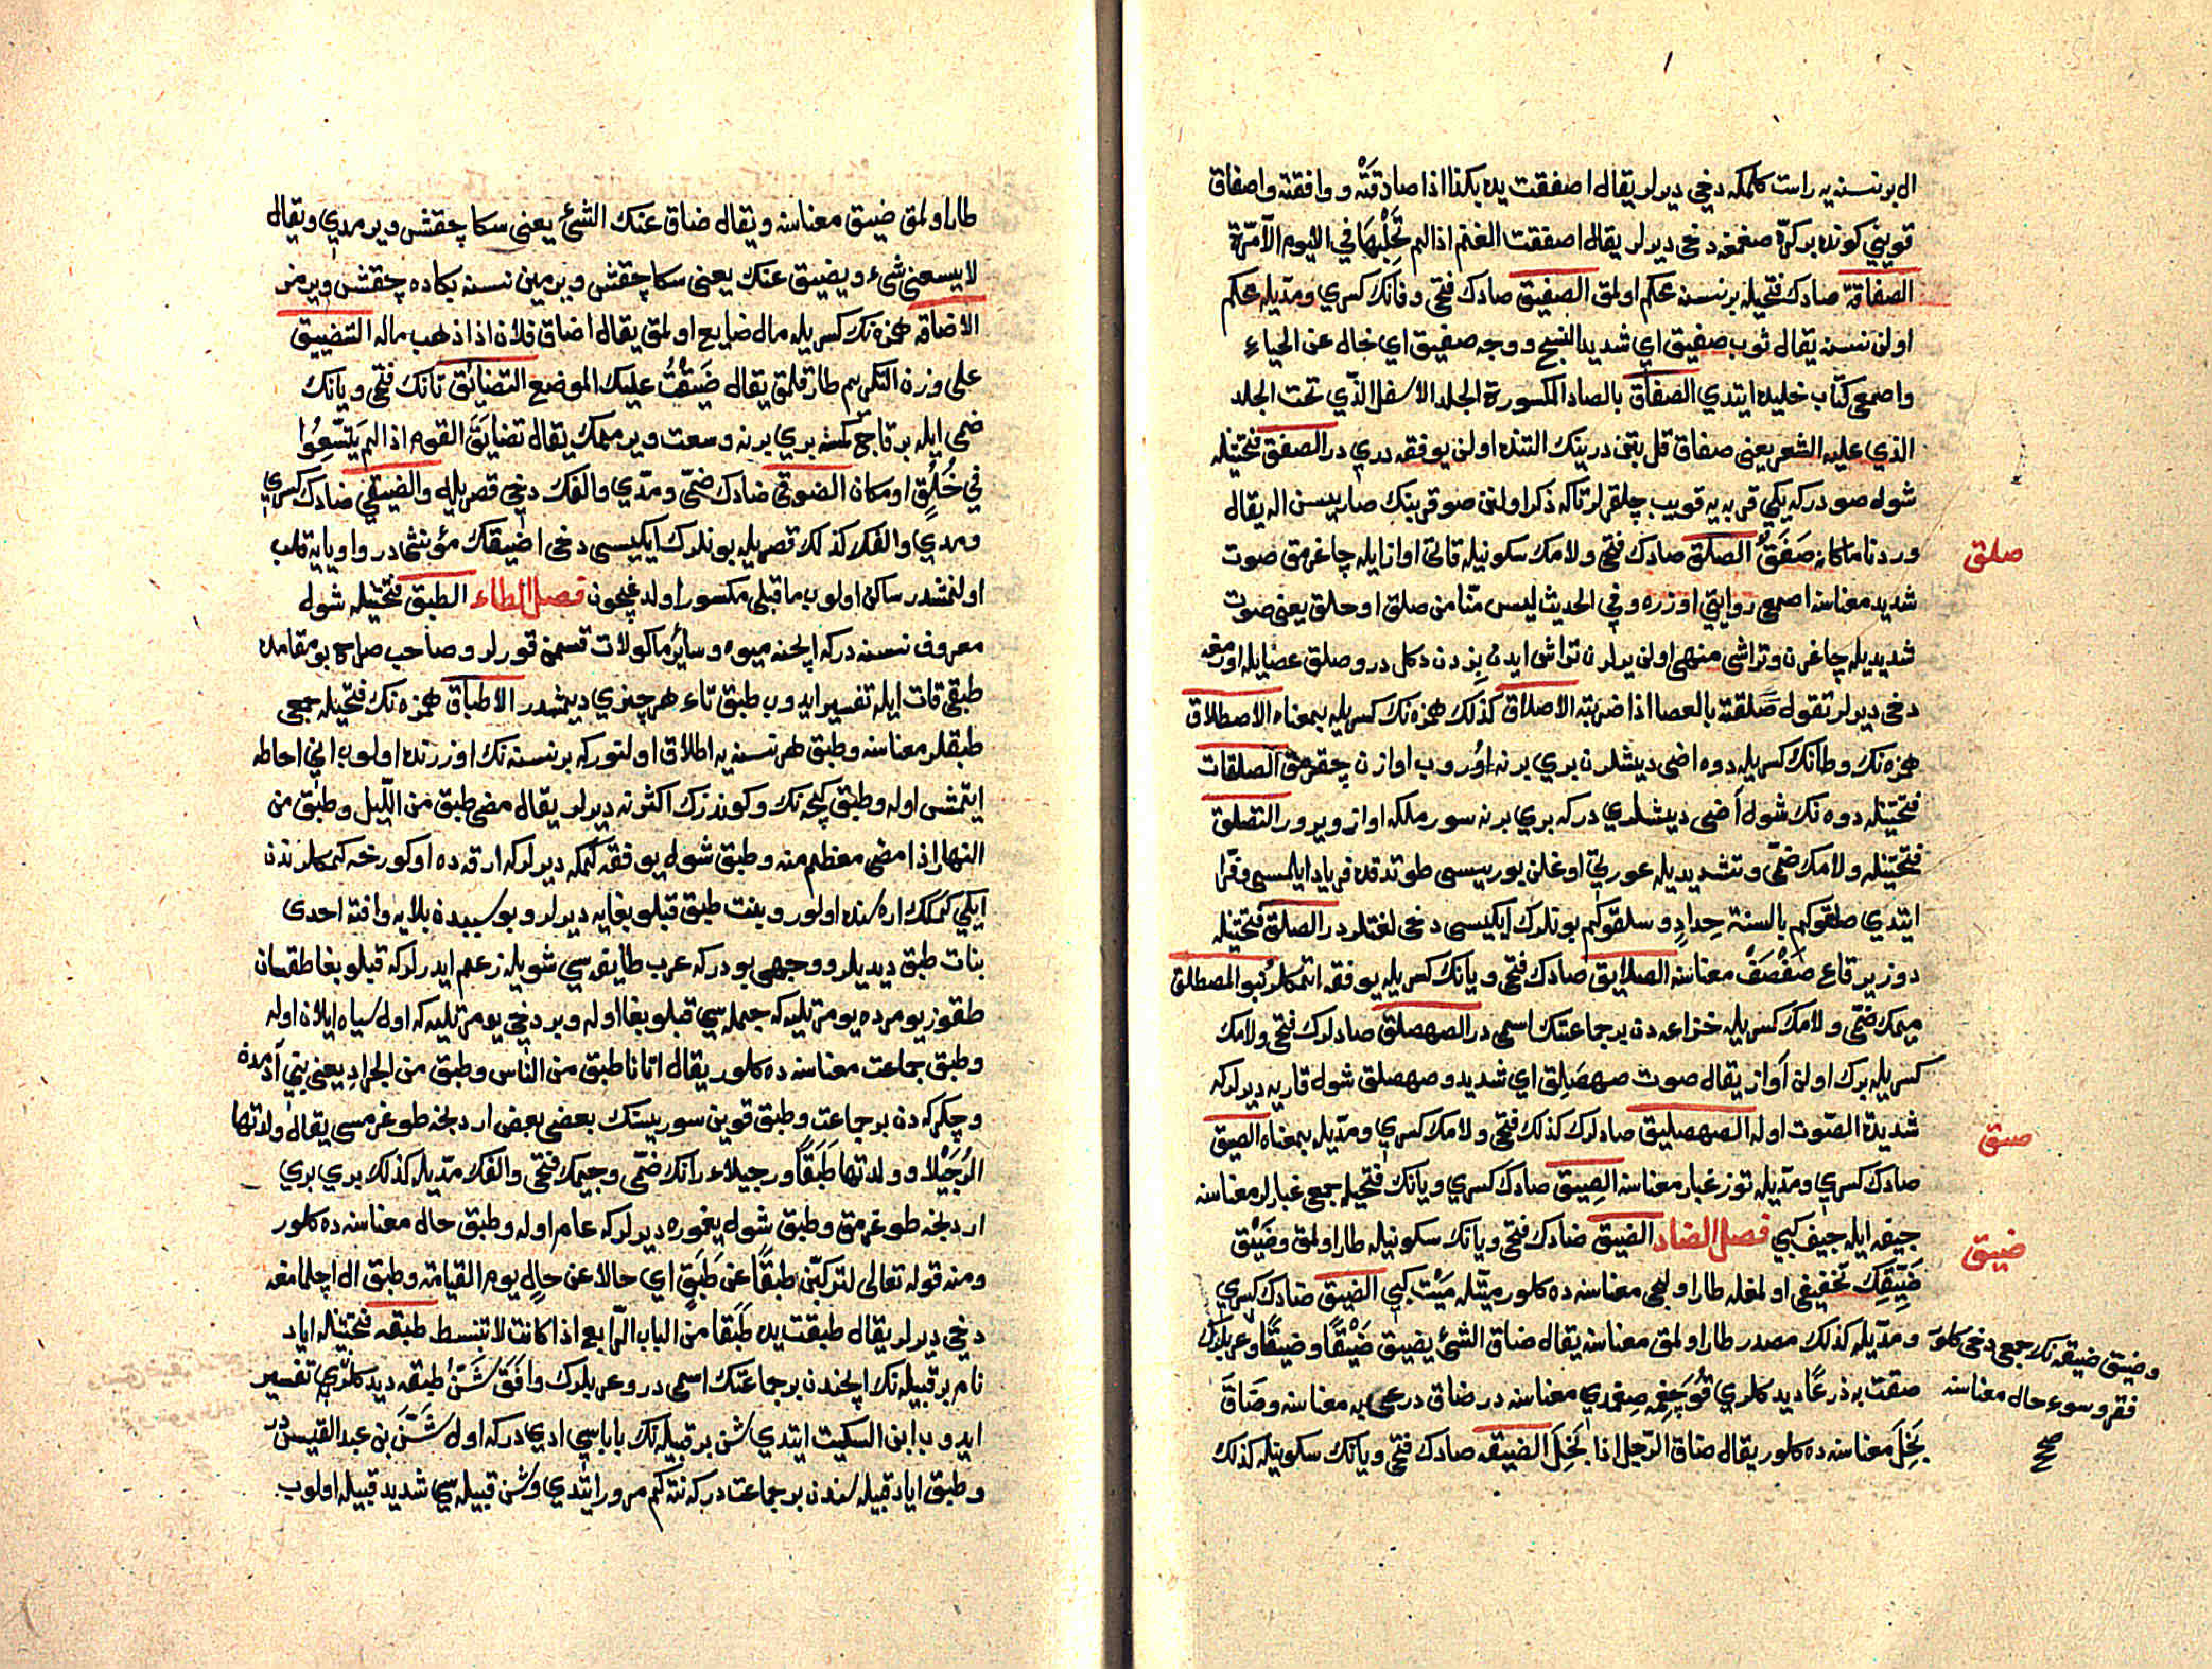 ال بر نسنه یه راست کلمکه دخی دیرلر یقال اصفقت یده بکذا اذا صادقته ووافقته واصفاق
قوینی کونده بر کره صغمغه دخی دیرلر یقال اصفقت الغنم اذا لم تحلبها فی الیوم الا مرة
الصفاقة صادک فتحیله بر نسنه محکم اولمق الصفیق صادک فتحی وفانک کسری ومدیله محکم
اولن نسنه یقال ثوب صفیق ای شدید النسج ووجه صفیق ای خال عن الحیاء
واصمعی کتاب خلیده ایتدی الصفاق بالصاد المکسورة الجلد الاسفل الذی تحت الجلد
الذی علیه الشعر یعنی صفاق قل بتن درینک التنده اولن یوفقه دری در الصفق فتحتیله
شول صودر که یکی قربه یه قویب چلقرلر تاکه ذکر اولنن صو قربنک صاریسن اله یقال
وردنا ماء کانه صَفَقٌ الصلق صادک فتحی ولامک سکونیله قاتی اوازایله چاغرمق صوت
صلق
شدید معناسنه اصمعی روایتی اوزره وفی الحدیث لیس منا من صلق او حلق یعنی صوت
شدیدیله چاغرن وتراشی منهی اولن یرلرن تراش ایدن بزدن دکل در وصلق عصایله اورمغه
دخی دیرلر تقول صَلَقته بالعصا اذا ضربته الاصلاق کذلک همزه نک کسریله بمعناه الاصطلاق
همزه نک وطانک کسریله دوه اضی دیشلرن بری برنه اوُروب اوازن چقرمق الصلقات
فتحتیله دوه نک شول اضی دیشلری در که بری برنه سورملکه اواز ویرور التصلق
فتحتیله ولامک ضمی وتشدیدیله عورتی اوغلن بوریسی طوتدقده فریاد ایلمسی وفرا
ایتدی صلقوکم بالسنة حِدادٍ وسلقوکم بونلرک ایکیسی دخی لغتلردر الصلق فتحتیله
دوز یر قاع صَفْصَفٌ معناسنه الصلایق صادک فتحی ویانک کسریله یوفقه اتمکلر کبو المصطلق
میمک ضمی ولامک کسریله خزاعه دن بر جماعتک اسمی در الصهصلق صادلرک فتحی ولامک
کسریله برک اولن آواز یقال صوت صهصَلِق ای شدید وصهصلق شول قاریه دیرلر که
شدیدة الصوت اوله الصهصلیق صادلرک کذلک فتحی ولامک کسری ومدیله بمعناه الصیق
صیق
صادک کسری ومدیله توز غبار معناسنه الصِیَق صادک کسری ویانک فتحیله جمعی غبارلر معناسنه
جیفه ایله جیف کبی فصل الضاد الضیق ضادک فتحی ویانک سکونیله طار اولمق وضَیْق
ضیق
ضَیِّقِک تخفیفی اولمغله طار اولیجی معناسنه ده کلور میتله مَیْت کبی الضیق ضادک کسری
ومدیله کذلک مصدر طار اولمق معناسنه یقال ضاق الشیٔ یضیق ضَیْقًا وضیقًا وعربلرک
وضیق ضیقه نک جمعی دخی کلور
فقر وسوء حال معناسنه
صح
ضقت به ذرعًا دیدکلری قُوَجغمه صِغمدی معناسنه در ضاق ذرعی به معناسنه وضَاقَ
بَخِلَ معناسنه ده کلور یقال ضاق الرجل اذا بَخِلَ الضیقه ضادک فتحی ویانک سکونیله کذلک
طار اولمق ضیق معناسنه ویقال ضاق عنک الشیٔ یعنی سکا چقشی ویرمدی ویقال
لا یسعنی شیء ویضیق عنک یعنی سکا چقشی ویرمین نسنه بکاده چقشی ویرمز
الاضاقه همزه نک کسریله مال ضایع اولمق یقال اضاق فلان اذا ذهب ماله التضییق
علی وزن التکریم طار قلمق یقال ضَیَّقْتُ علیک الموضع التضایُق تانک فتحی ویانک
ضمی ایله بر قاچ کمسه بری برنه وسعت ویرممک یقال تضایَقَ القوم اذا لم یَتَّسِعُوا
فی خُلُقٍ او مکان الضوقی ضادک ضمی ومدی والفک دخی قصریله والضیقی ضادک کسری
ومدی والفک کذلک قصریله بونلرک ایکیسی دخی اضیقک مؤنثی در واو یایه قلب
اولنمشدر ساکن اولوب ماقبلی مکسور اولدغیچون فصل الطاء الطبق فتحتیله شول
معروف نسنه در که ایچنه میوه وسایر ماکولات قسمن قورلر وصاحب صراح بو مقامده
طبقی قات ایله تفسیر ایدوب طبق تاء هر چیزی دیمشدر الاطباق همزه نک فتحیله جمعی
طبقلر معناسنه وطبق هر نسنه یه اطلاق اولنور که بر نسنه نک اوزرنده اولوب انی احاطه
ایتمش اوله وطبق کیجه نک وکوندزک اکثرنه دیرلر یقال مضی طبق من اللیل وطبق من
النهار اذا مضی معظم منه وطبق شول یوفقه کمکه دیرلر که ارقه ده اوکورخه کمکلرندن
ایکی کمکک اره سنده اولور وبنت طبق قبلوبغایه دیرلر وبو سببدن بلایه وافته احدی
بنات طبق دیدیلر ووجهی بودر که عرب طایفه سی شویله زعم ایدرلر که قبلوبغا طقسان
طقوز یومرده یومرتلیه که جمله سی قبلوبغا اوله وبر دخی یومرتلیه که اول سیاه ایلان اوله
وطبق جماعت معناسنه ده کلور یقال اتانا طبق من الناس وطبق من الجراد یعنی بنی آدمدن
وچکرکه دن بر جماعت وطبق قوین سوریسنک بعضی بعض اردنجه طوغرمسی یقال ولدتها
الرُجَیْلاء وولدتها طَبَقًا ورجیلاء رانک ضمی وجیمک فتحی والفک مدیله کذلک بری بری
اردنجه طوغرمق وطبق شول یغموره دیرلر که عام اوله وطبق حال معناسنه ده کلور
ومنه قوله تعالی لترکبن طبقًا عن طَبَقٍ ای حالا عن حالٍ یوم القیامة وطبق ال اچلمامغه
دخی دیرلر یقال طبقت یده طَبَقا من الباب الرابع اذا کانت لا تنبسط طبقه فتحتیله ایاد
نام بر قبیله نک ایچندن بر جماعتک اسمی در وعربلرک وافَقَ شَنٌّ طبقه دیدکلری تفسیر
ایدوب ابن السکیت ایتدی شن بر قبیله نک باباسی ادی در که اول شَنّ بن عبد القیس در
وطبق ایاد قبیله سندن بر جماعت در که نته کم مرور ایتدی وشن قبیله سی شدید قبیله اولوب